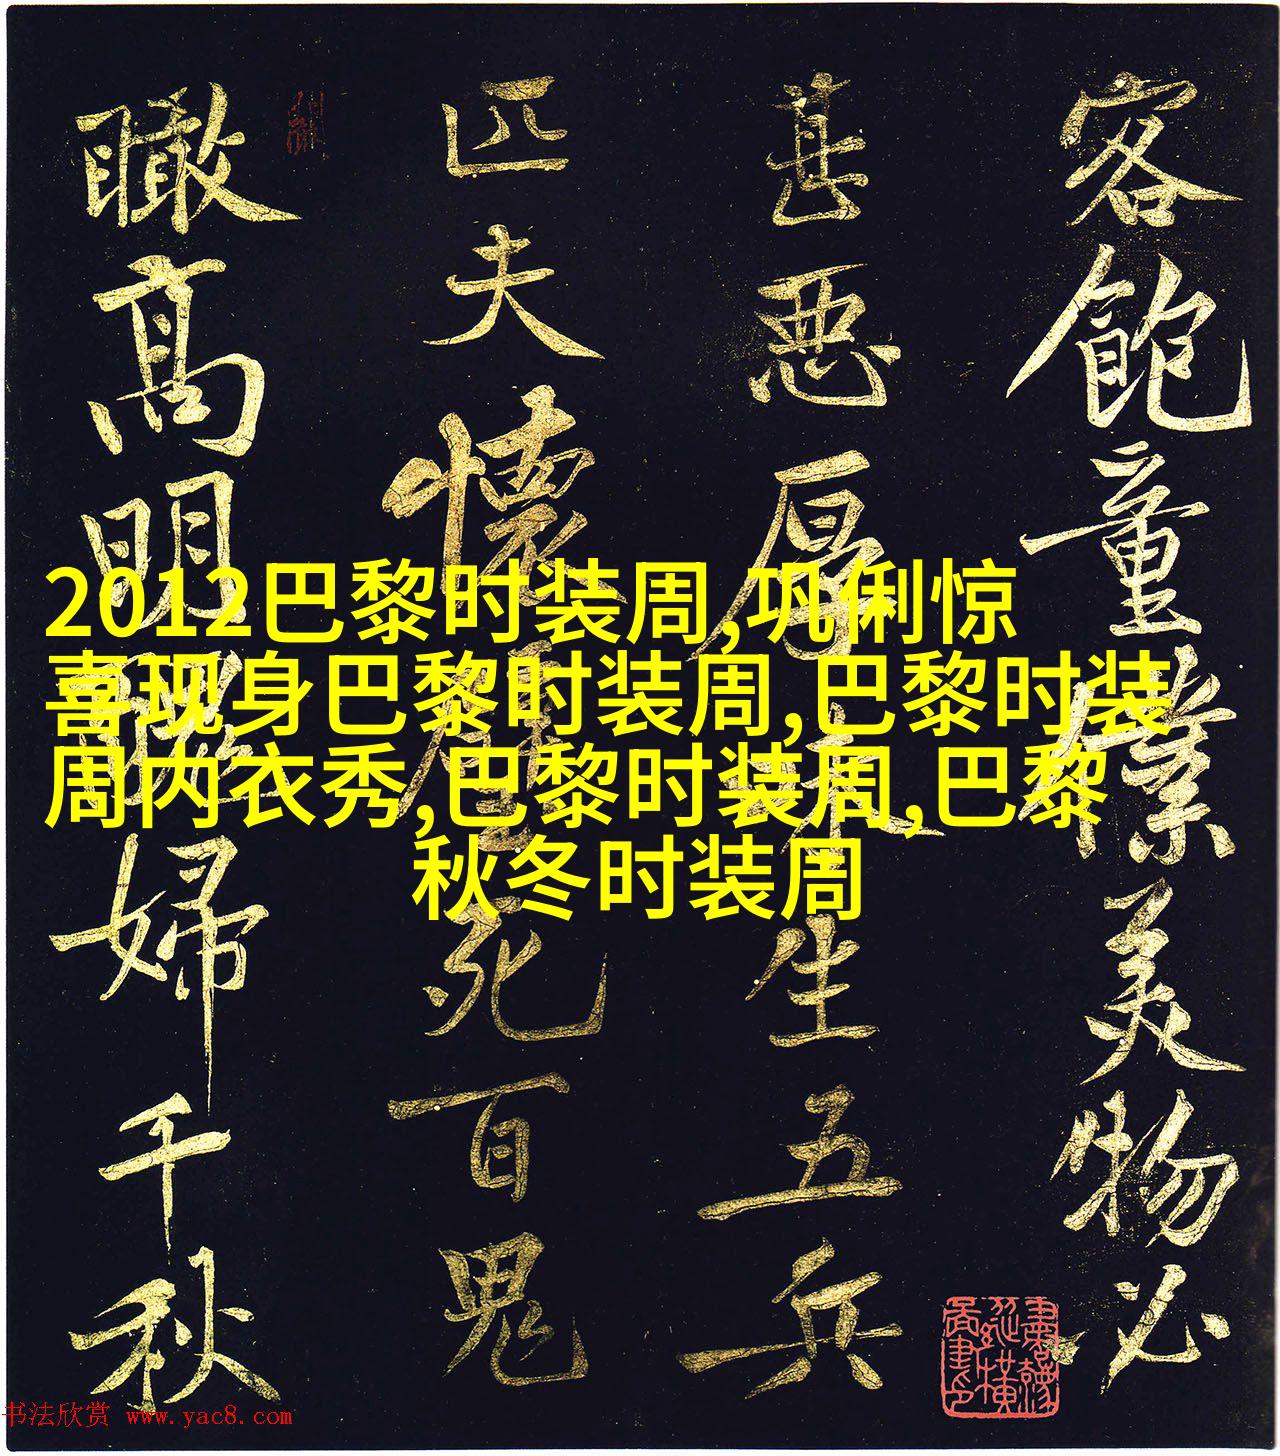 客飽童僕美物必
甚惡厚味生五兵
匹夫懷璧死百鬼
瞰高明婦千秋
2012巴黎时装周,巩俐惊
喜现身巴黎时装周,巴黎时装
周内衣秀,巴黎时装周,巴黎
秋冬时装周
书法欣赏 www.yac8.com